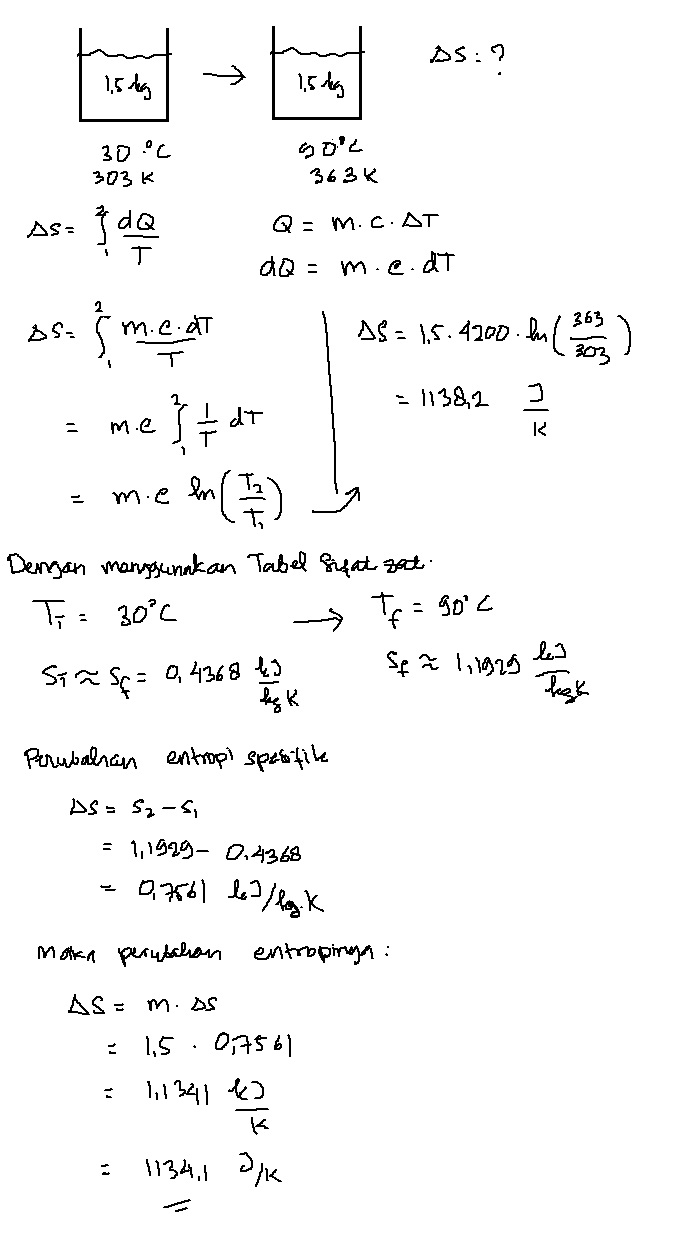 1,5 kg → 1,5 kg ΔS = ?
30 °C 90°C
303 K 363 K
ΔS = ∫₁² dQ/T Q = m.c.ΔT
dQ = m.c.dT
ΔS = ∫₁² m.c.dT/T
= m.c ∫₁² 1/T dT
= m.c ln(T₂/T₁)
ΔS = 1,5 . 4200 . ln(363/303)
= 1138,2 J/K
Dengan menggunakan Tabel Sifat zat.
Tᵢ = 30°C → T_f = 90°C
Sᵢ ≈ S_f = 0,4368 kJ/kg K S_f ≈ 1,1929 kJ/kgK
Perubahan entropi spesifik
ΔS = S₂ - S₁
= 1,1929 - 0,4368
= 0,7561 kJ/kg.K
Maka perubahan entropinya :
ΔS = m. ΔS
= 1,5 . 0,7561
= 1,1341 kJ/K
= 1134,1 J/K